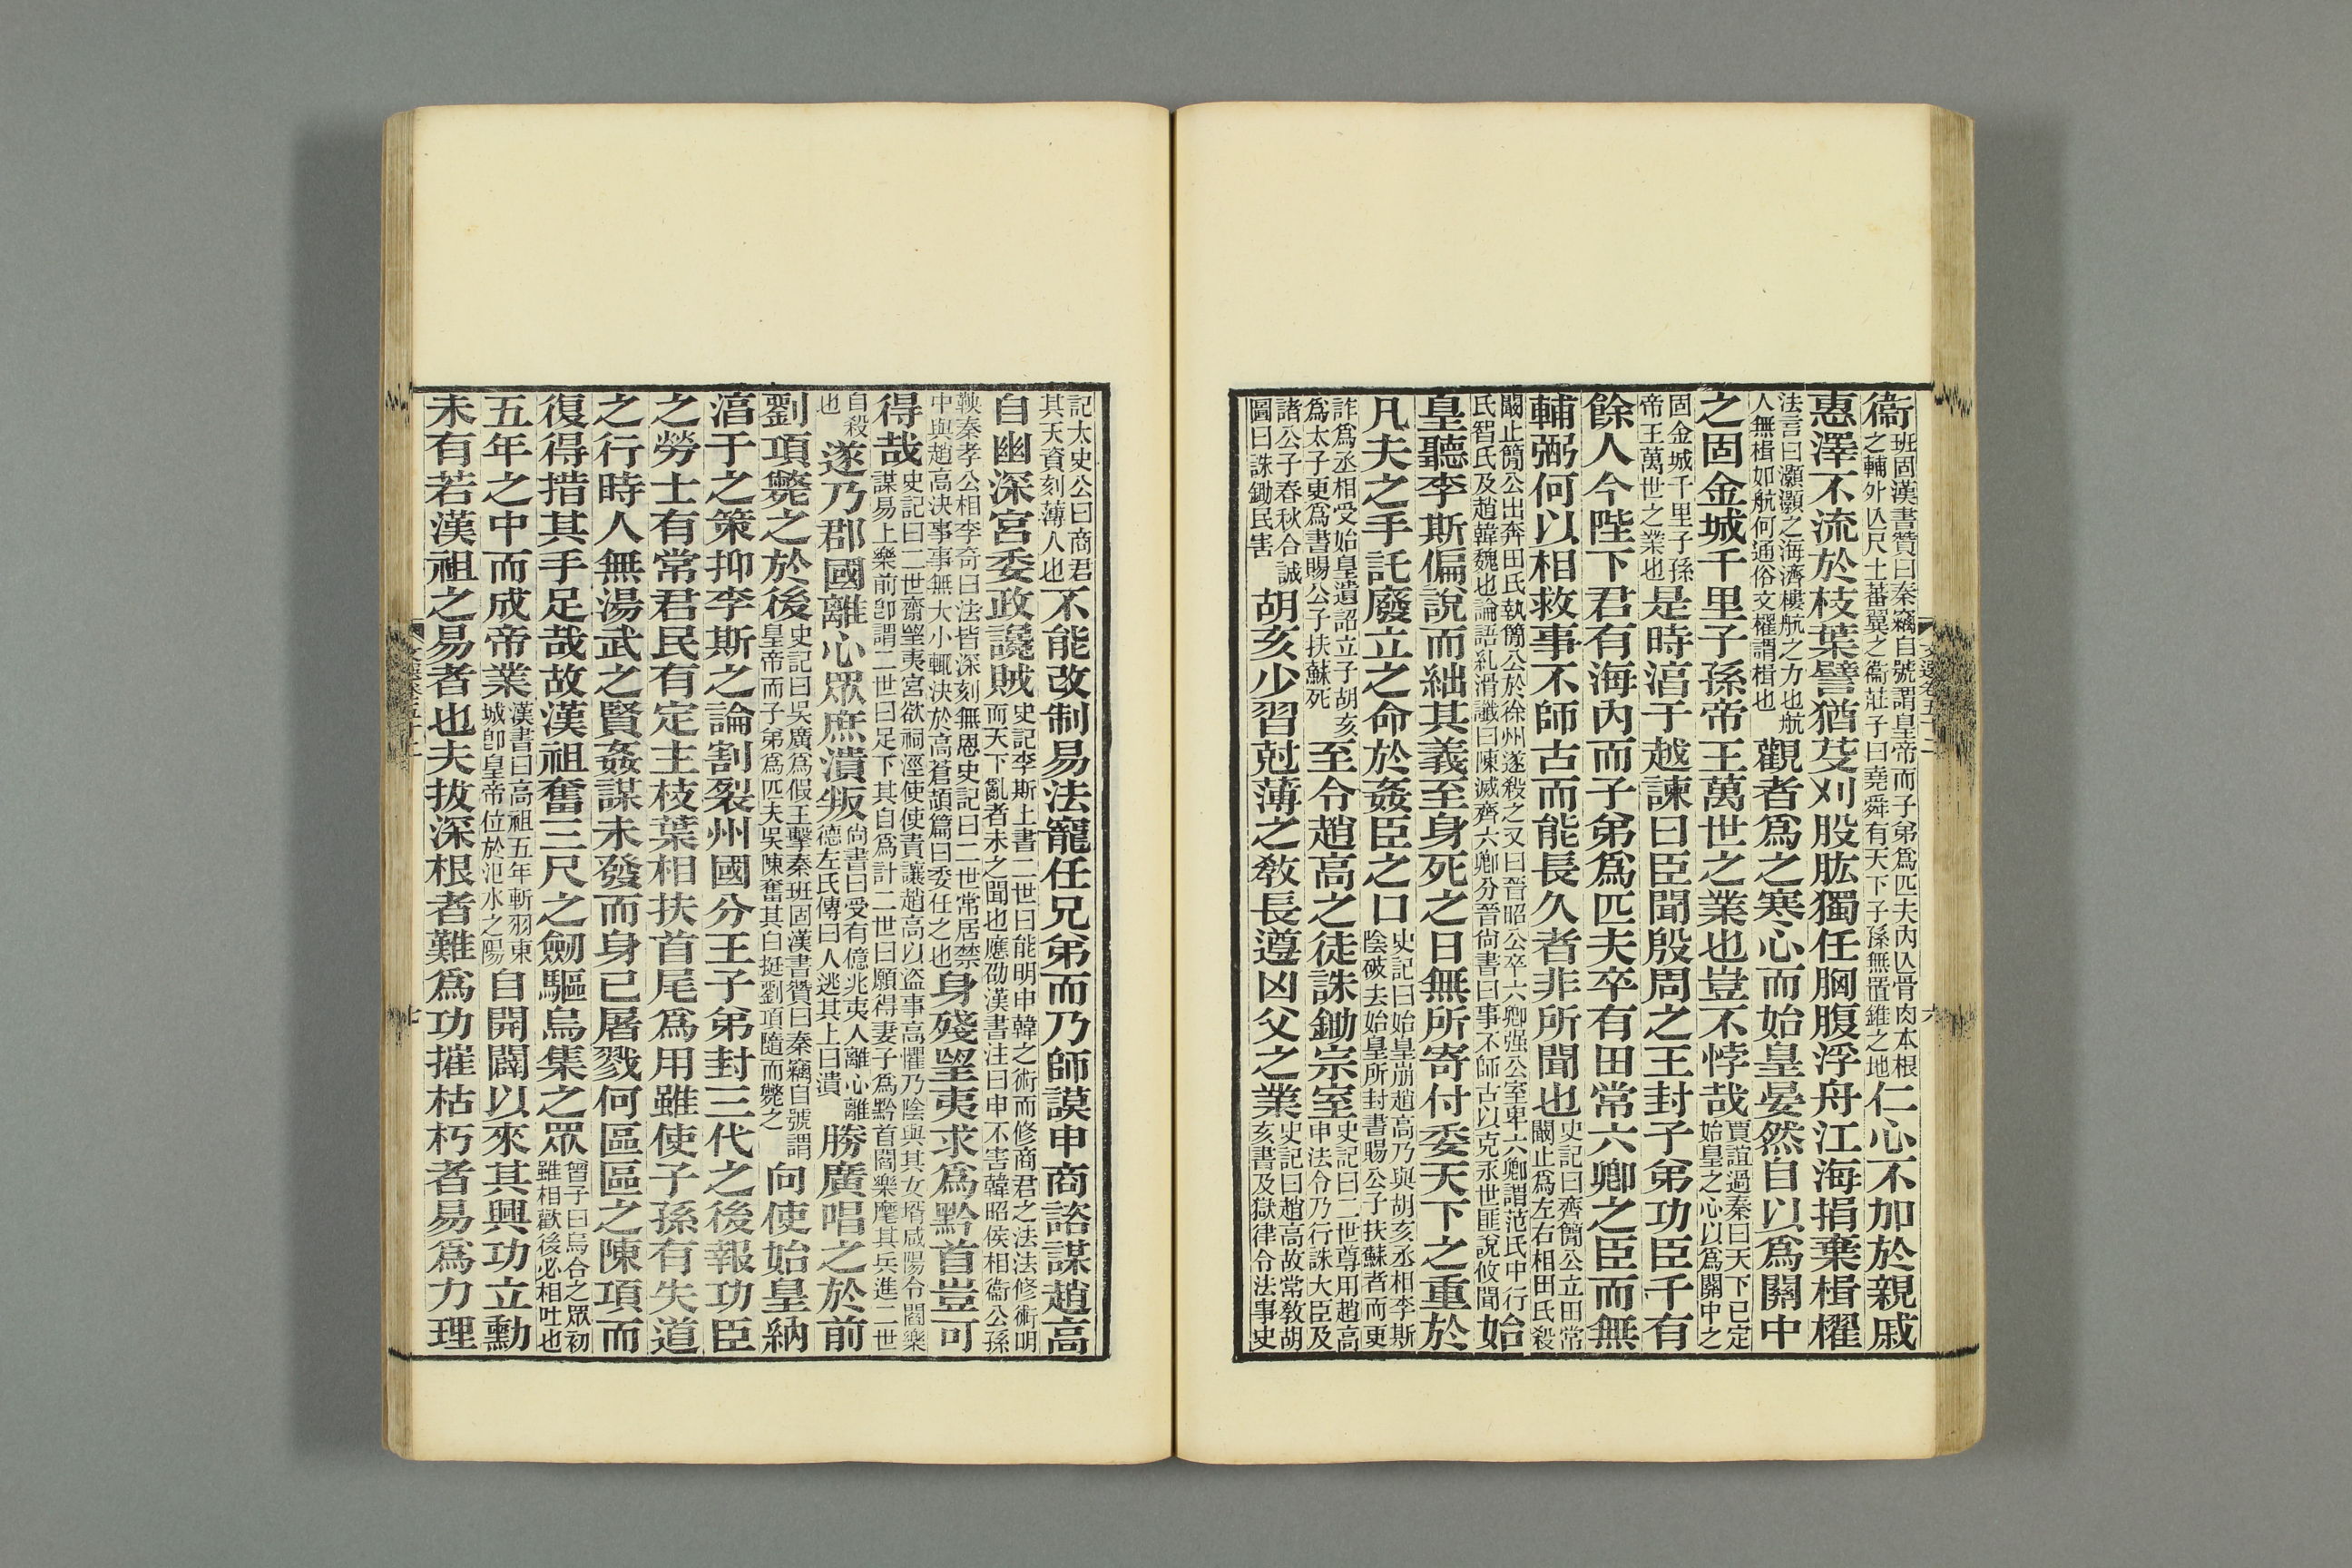 衞班固漢書贊曰秦竊自號謂皇帝而子弟爲匹夫内亾骨肉本根之輔外亾尺土蕃翼之衞莊子曰堯舜有天下子孫無置錐之地仁心不加於親戚
惠澤不流於枝葉譬猶芟刈股肱獨任胸腹浮舟江海捐棄楫櫂
法言曰灝灝之海濟樓航之力也航人無楫如航何通俗文櫂謂楫也觀者爲之寒心而始皇晏然自以爲關中
之固金城千里子孫帝王萬世之業也豈不悖哉賈誼過秦曰天下已定始皇之心以爲關中之
固金城千里子孫帝王萬世之業也是時淳于越諫曰臣聞殷周之王封子弟功臣千有
餘人今陛下君有海内而子弟爲匹夫卒有田常六卿之臣而無
輔弼何以相救事不師古而能長久者非所聞也史記曰齊簡公立田常闞止爲左右相田氏殺
闞止簡公出奔田氏執簡公於徐州遂殺之又曰晉昭公卒六卿强公室卑六卿謂范氏中行氏智氏及趙韓魏也論語糺滑讖曰陳滅齊六卿分晉尙書曰事不師古以克永世匪說攸聞始
皇聽李斯偏說而絀其義至身死之日無所寄付委天下之重於
凡夫之手託廢立之命於姦臣之口史記曰始皇崩趙高乃與胡亥丞相李斯陰破去始皇所封書賜公子扶蘇者而更
詐爲丞相受始皇遺詔立子胡亥爲太子更爲書賜公子扶蘇死至令趙高之徒誅鋤宗室史記曰二世尊用趙高申法令乃行誅大臣及
諸公子春秋合誠圖曰誅鋤民害胡亥少習尅薄之敎長遵凶父之業史記曰趙高故常敎胡亥書及獄律令法事史
記太史公曰商君其天資刻薄人也不能改制易法寵任兄弟而乃師謨申商諮謀趙高
自幽深宮委政讒賊史記李斯上書二世曰能明申韓之術而修商君之法法修術明而天下亂者未之聞也應劭漢書注曰申不害韓昭侯相衞公孫
鞅秦孝公相李奇曰法皆深刻無恩史記曰二世常居禁中與趙高决事事無大小輒決於高蒼頡篇曰委任之也身殘望夷求爲黔首豈可
得哉史記曰二世齋望夷宮欲祠涇使使責讓趙高以盜事高懼乃陰與其女壻咸陽令閻樂謀易上樂前卽謂二世曰足下其自爲計二世曰願得妻子爲黔首閻樂麾其兵進二世
自殺也遂乃郡國離心眾庶潰叛尙書曰受有億兆夷人離心離德左氏傳曰人逃其上曰潰勝廣唱之於前
劉項斃之於後史記曰吳廣爲假王擊秦班固漢書贊曰秦竊自號謂皇帝而子弟爲匹夫吳陳奮其白挺劉項隨而斃之向使始皇納
淳于之策抑李斯之論割裂州國分王子弟封三代之後報功臣
之勞士有常君民有定主枝葉相扶首尾爲用雖使子孫有失道
之行時人無湯武之賢姦謀未發而身已屠戮何區區之陳項而
復得措其手足哉故漢祖奮三尺之劒驅烏集之眾曾子曰烏合之眾初雖相歡後必相吐也
五年之中而成帝業漢書曰高祖五年斬羽東城卽皇帝位於汜水之陽自開闢以來其興功立勳
未有若漢祖之易者也夫拔深根者難爲功摧枯朽者易爲力理
文選卷五十二
六
七